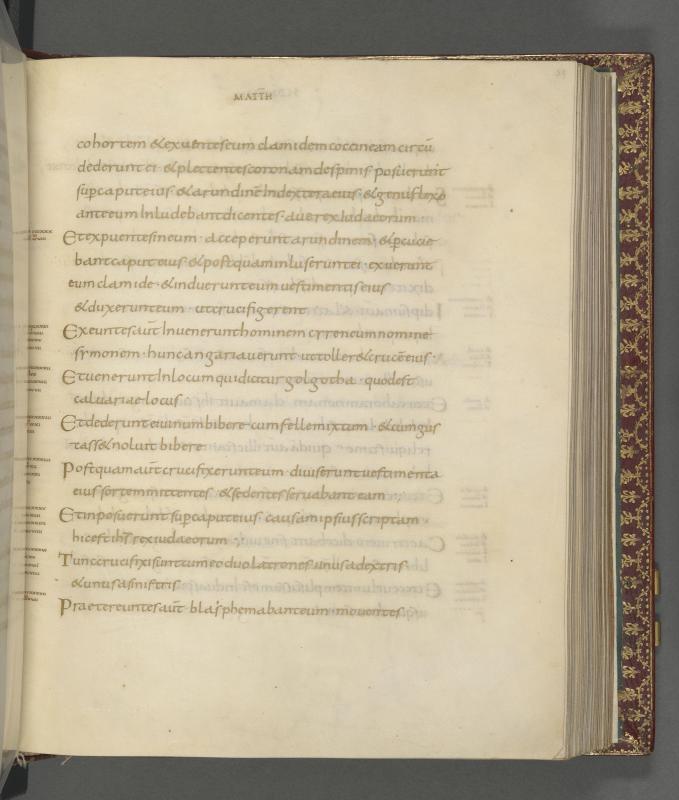 MATTH
cohortem &exuentes eum clamidem coccineam circū
dederunt ei · &plectentes coronam despinis · posuerunt
sup caput eius · &arundinē In dextera eius · &genuflexo
ante eum Inludebant dicentes · aue rex Iudaeorum
Et expuentes in eum · acceperunt arundinem · &pcucie
bant caput eius · &postquam inluserunt ei · exuerunt
eum clamide · &induerunt eum uestimentis eius
&duxerunt eum ut crucifigerent
Exeuntes aūt Inuenerunt hominem cyreneum nomine
symonem · hunc angariauerunt ut toller& crucē eius
Et uenerunt In locum qui dicitur golgotha · quod est
caluariae locus
Et dederunt ei uinum bibere cum felle mixtum · &cum gus
tass& noluit bibere
Postquam aūt crucifixerunt eum · diuiserunt uestimenta
eius sortem mittentes · &sedentes seruabant eum
Et inposuerunt sup caput eius causam ipsius scriptam
hic est ihs rex iudaeorum
Tunc crucifixi sunt cum eo duo latrones · unus a dextris
&unus a sinistris
Praetereuntes aūt blasphemabant eum mouentes